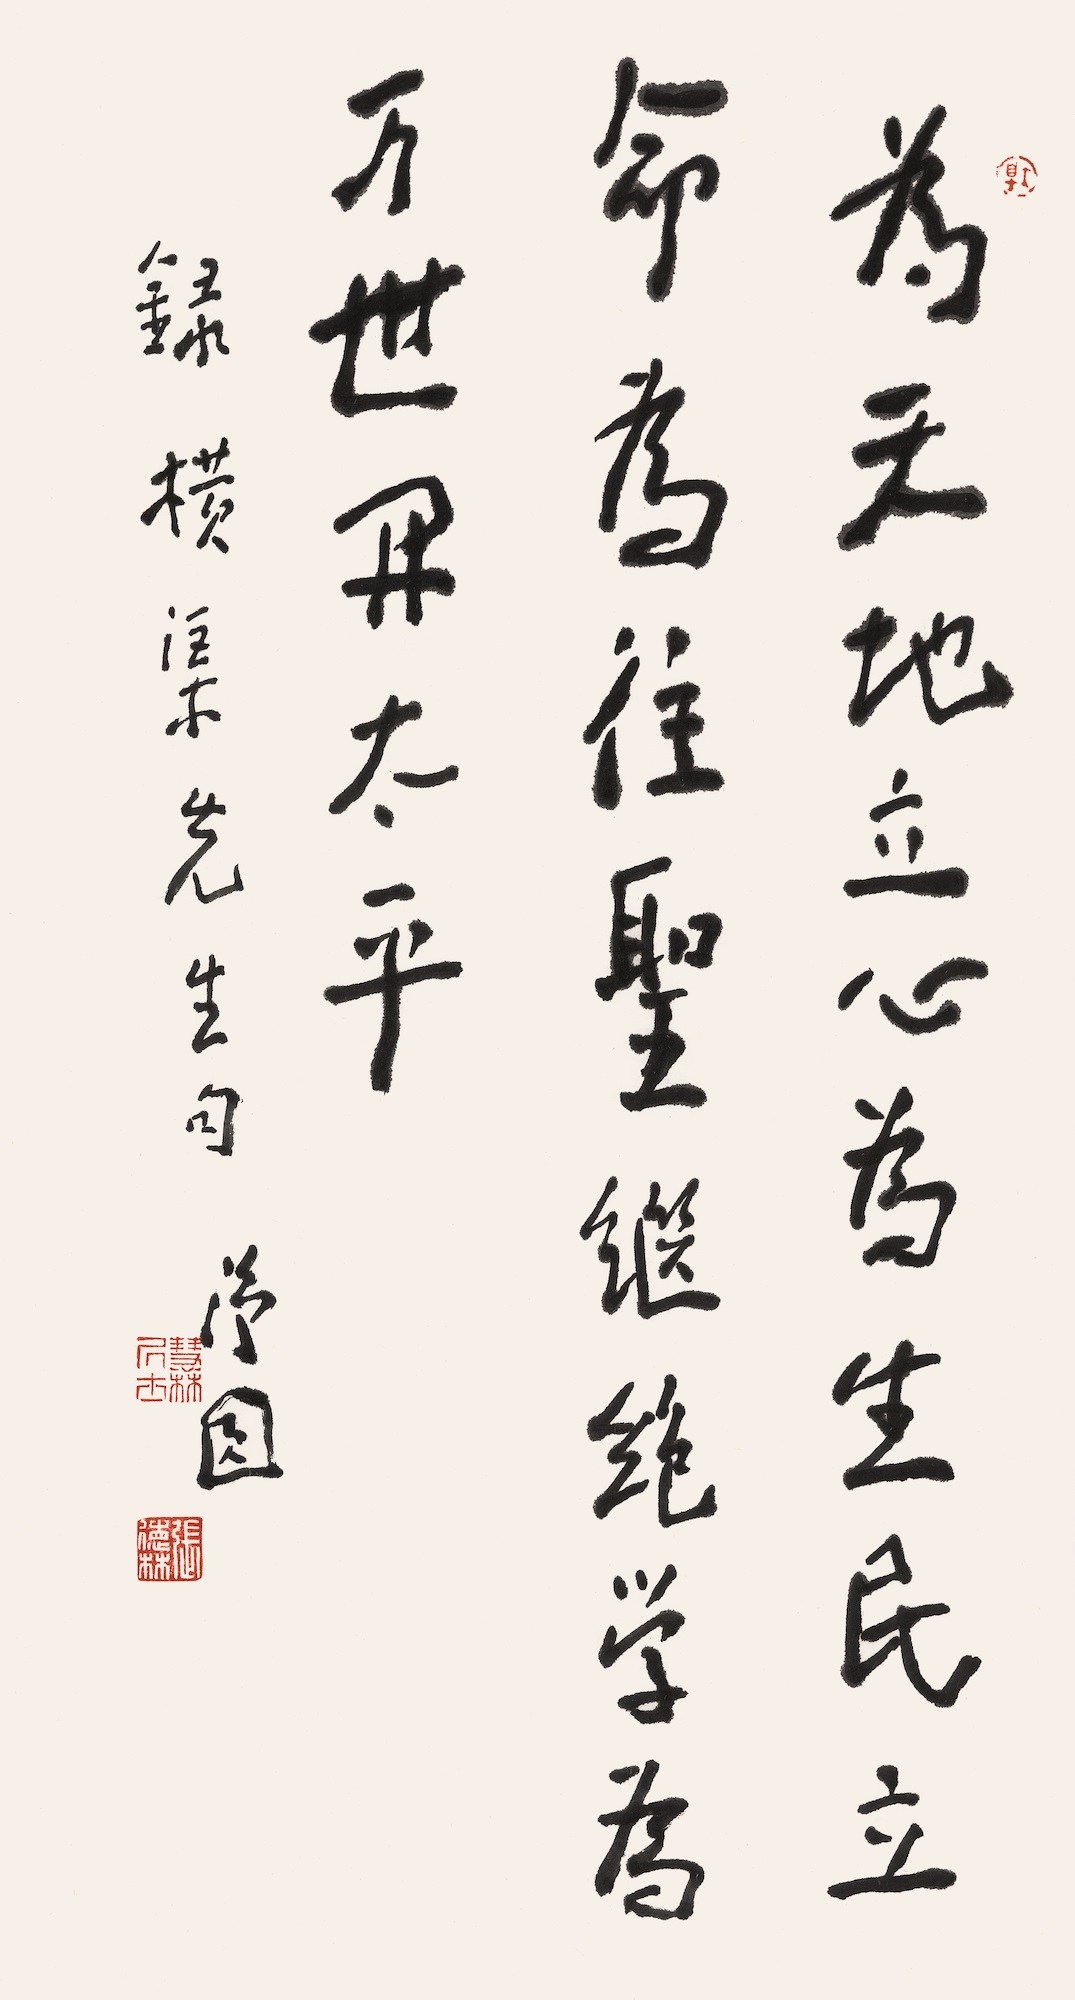 為天地立心為生民立
命為往聖継絶学為
万世開太平
録橫渠先生句
净園
慧林居士
張德林